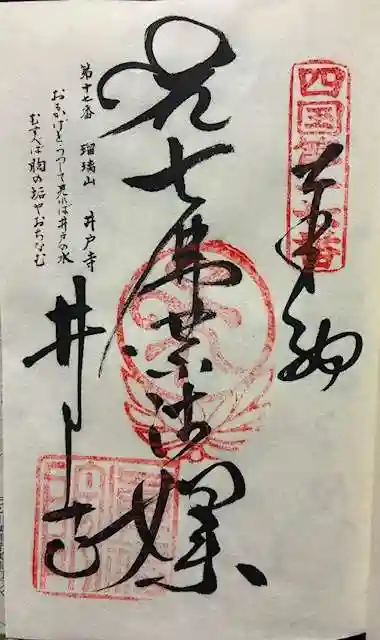 四国第十七番
奉納
七佛薬師
井戸寺
第十七番 瑠璃山 井戸寺
おもかげをうつして見れば井戸の水
むすべば胸の垢やおちなむ